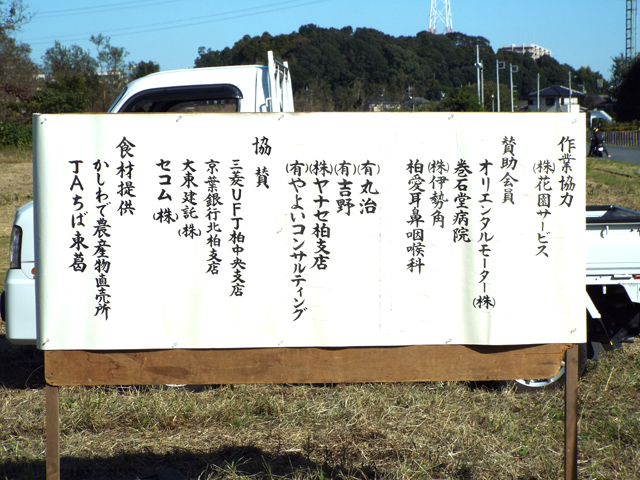 作業協力
(株)花園サービス
賛助会員
オリエンタルモーター(株)
巻石堂病院
(株)伊勢角
柏愛耳鼻咽喉科
(有)丸治
(有)吉野
(株)ヤナセ柏支店
(有)やよいコンサルティング
協賛
三菱UFJ柏中央支店
京葉銀行北柏支店
大東建託(株)
セコム(株)
食材提供
かしわで農産物直売所
JAちば東葛